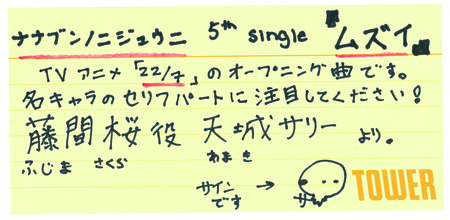 ナナブンノニジュウニ 5th single 『ムズイ』
TVアニメ「22/7」のオープニング曲です。
各キャラのセリフパートに注目してください！
藤間桜役 天城サリー より。
ふじま さくら あまき
サイン
です → サリー
TOWER